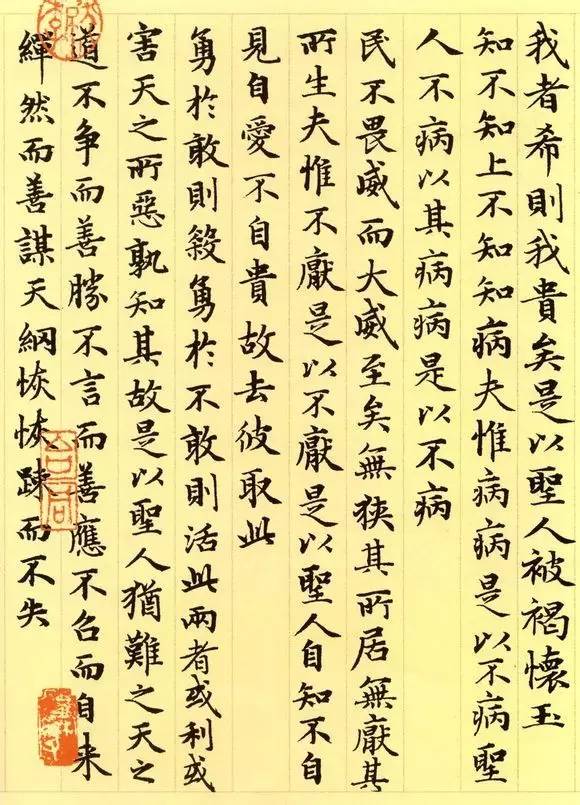 我者希則我貴矣是以聖人被褐懷玉
知不知上不知知病夫惟病病是以不病聖
人不病以其病病是以不病
民不畏威而大威至矣無狹其所居無厭其
所生夫惟不厭是以不厭是以聖人自知不自
見自愛不自貴故去彼取此
勇於敢則殺勇於不敢則活此兩者或利或
害天之所惡孰知其故是以聖人猶難之天之
道不爭而善勝不言而善應不召而自来
繟然而善謀天網恢恢踈而不失